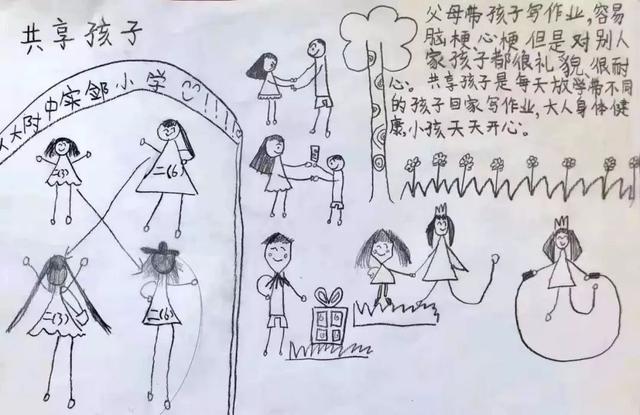 共享孩子
父母带孩子写作业,容易
脑梗心梗但是对别人
家孩子都很礼貌,很耐
心。共享孩子是每天放学带不同
的孩子回家写作业,大人身体健
康,小孩天天开心。
人大附中实邹小学!!!!!
二(3)
二(6)
二(3)
二(6)